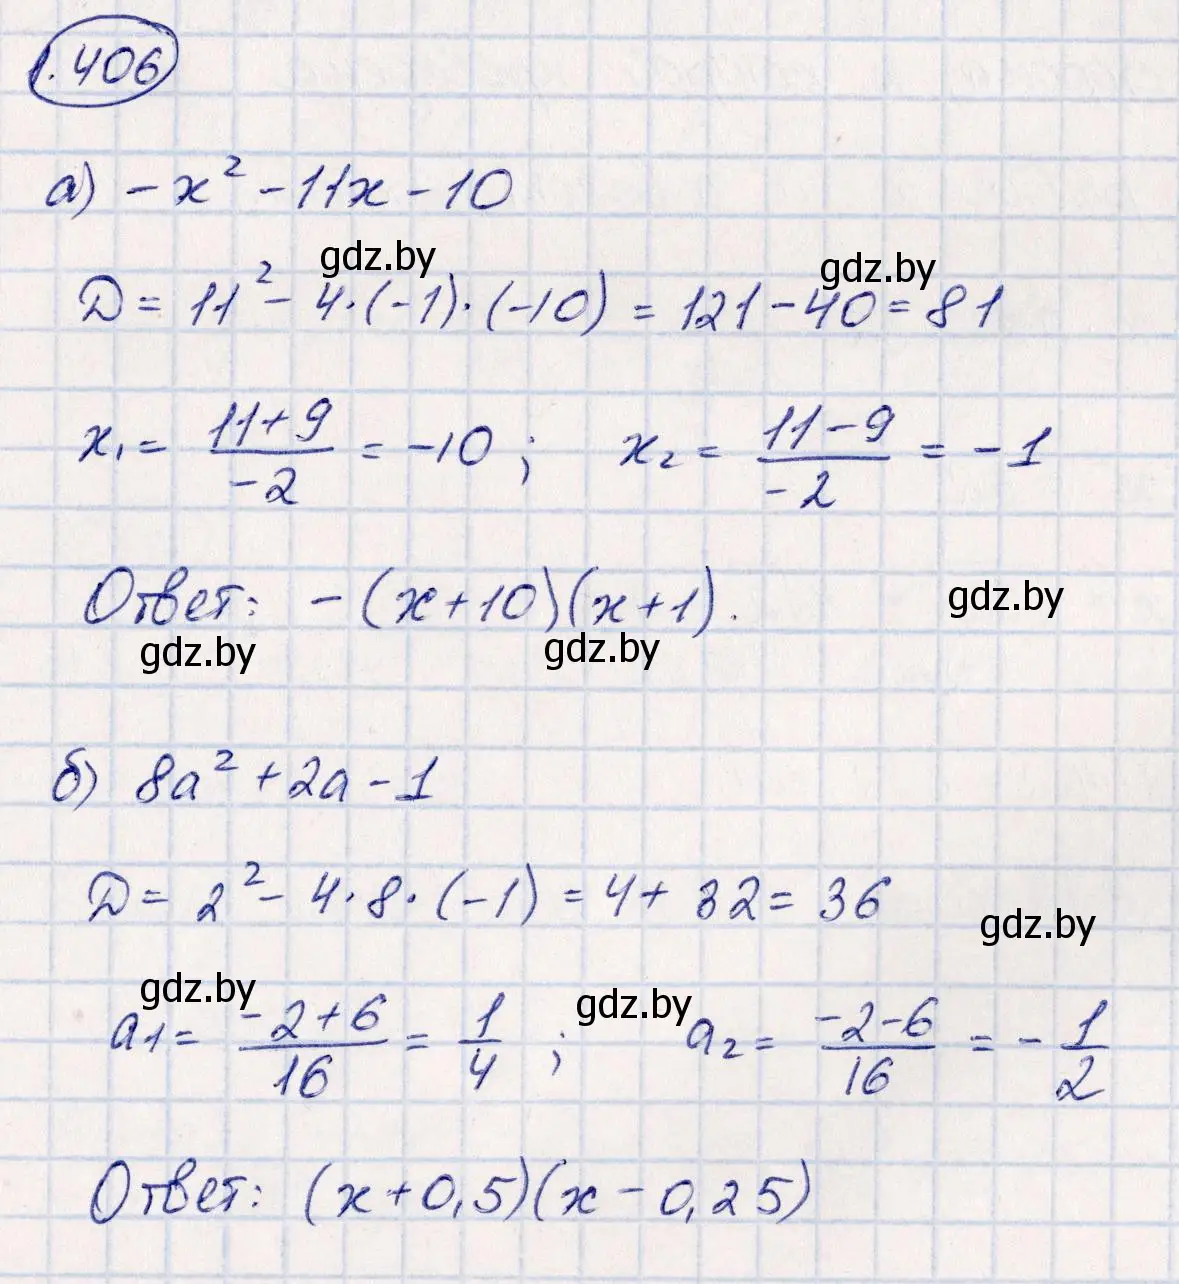 1.406
а) -x² - 11x - 10
gdz.by gdz.by
D = 11² - 4·(-1)·(-10) = 121 - 40 = 81
x₁ = (11+9)/(-2) = -10; x₂ = (11-9)/(-2) = -1
Ответ: -(x+10)(x+1). gdz.by
gdz.by gdz.by
б) 8a² + 2a - 1
D = 2² - 4·8·(-1) = 4 + 32 = 36
gdz.by
gdz.by gdz.by
a₁ = (-2+6)/16 = 1/4; a₂ = (-2-6)/16 = -1/2
Ответ: (x+0,5)(x-0,25)